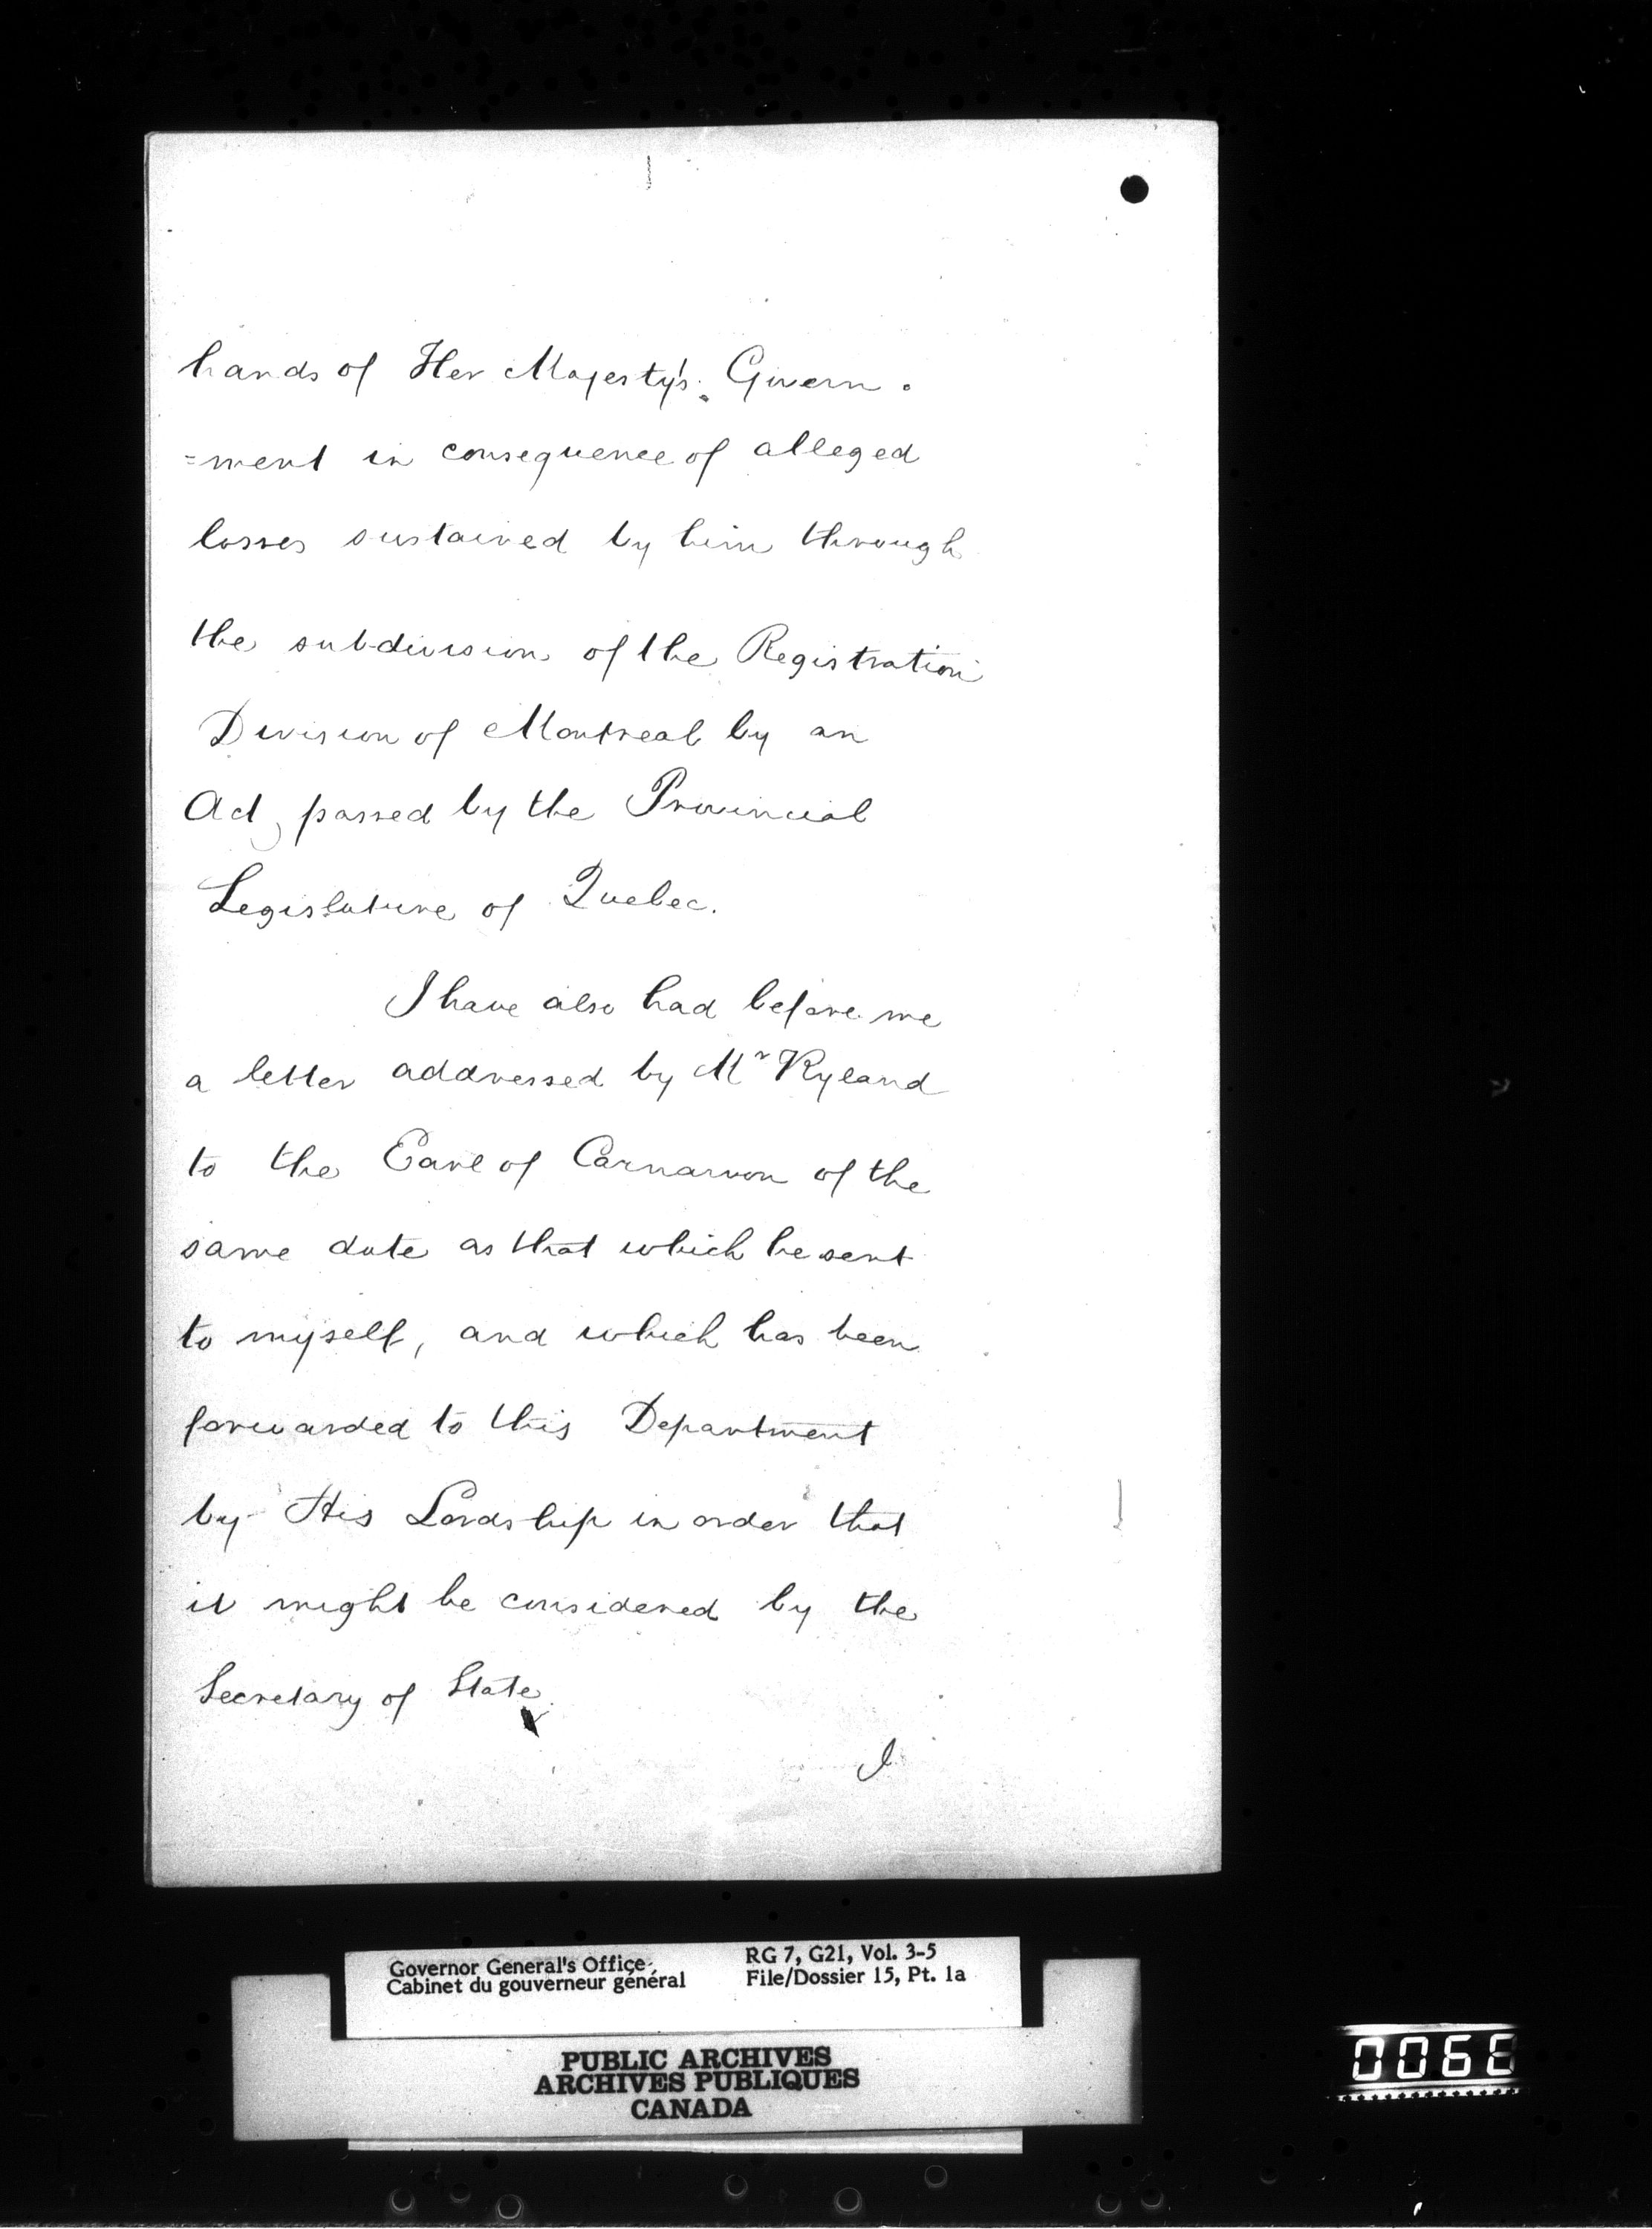 hands of Her Majesty's Govern
=ment in consequence of alleged
losses sustained by him through
the subdivision of the Registration
Division of Montreal by an
Act, passed by the Provincial
Legislature of Quebec.
I have also had before me
a letter addressed by Mr Ryland
to the Earl of Carnarvon of the
same date as that which he sent
to myself, and which has been
forwarded to this Department
by His Lordship in order that
it might be considered by the
Secretary of State.
I
Governor General's Office
Cabinet du gouverneur général
RG 7, G21, Vol. 3-5
File/Dossier 15, Pt. 1a
PUBLIC ARCHIVES
ARCHIVES PUBLIQUES
CANADA